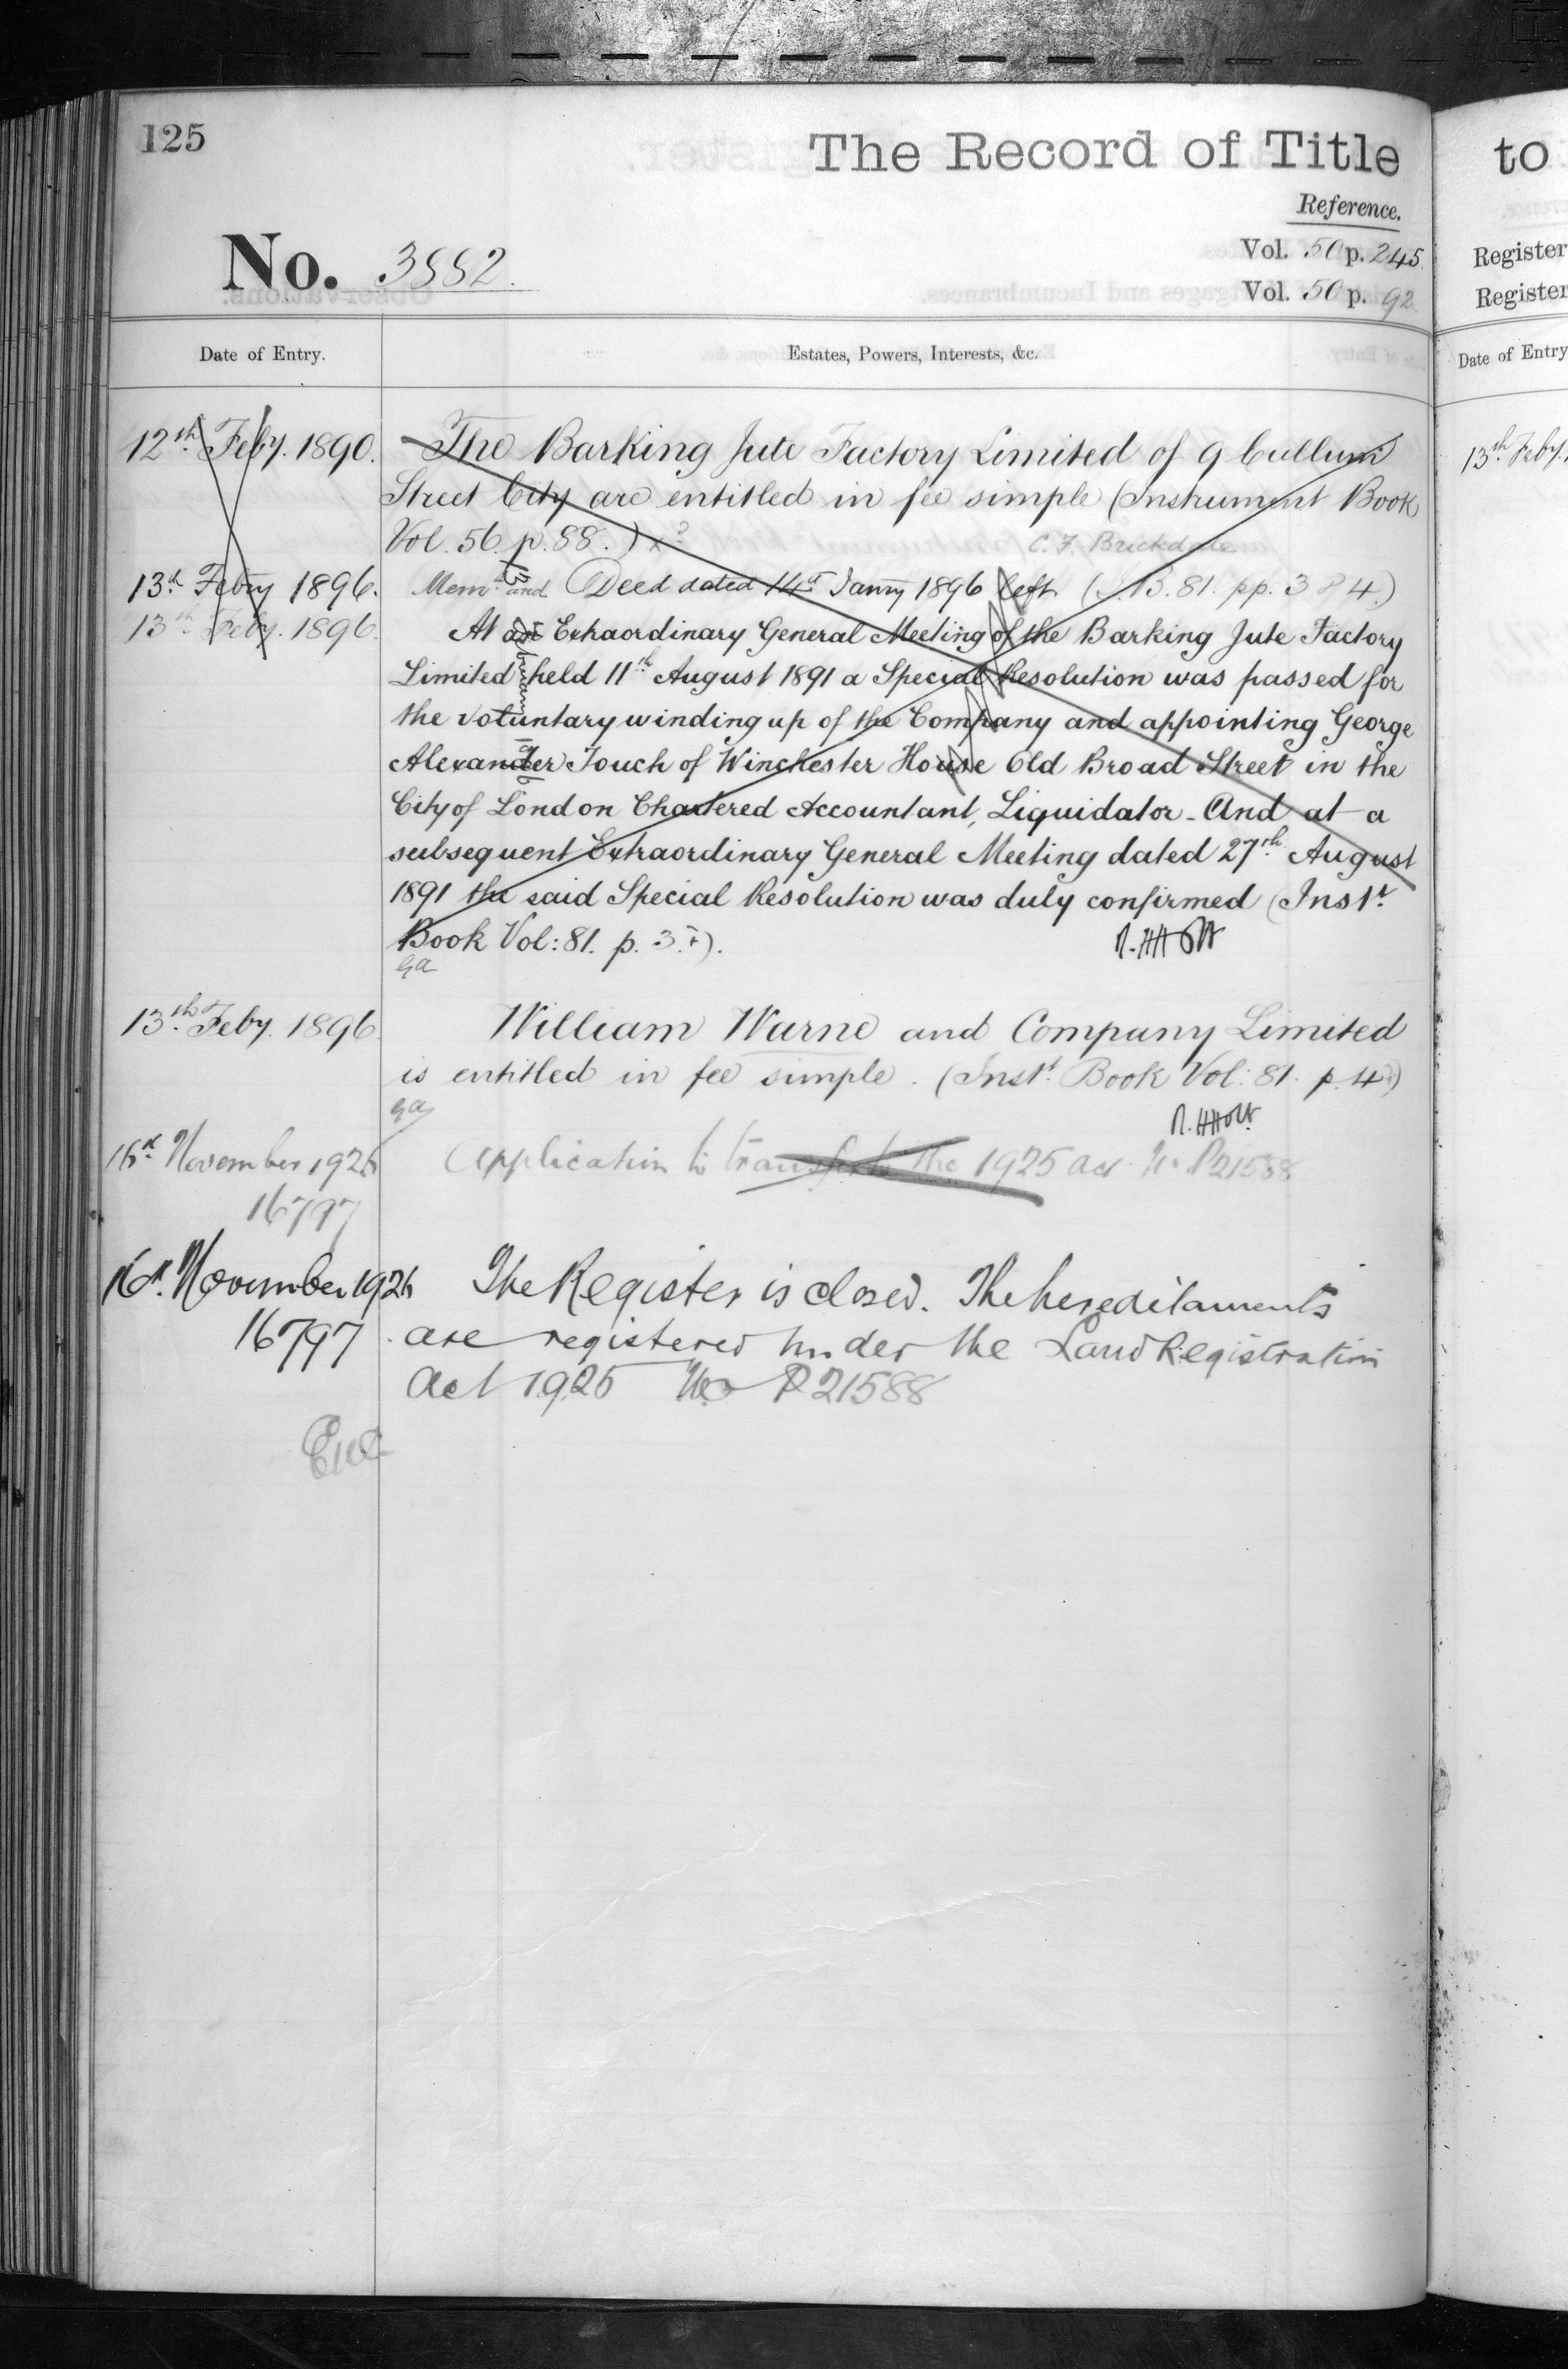 125
The Record of Title
to
Reference.
No. 3882.
Vol. 50 p. 245.
Vol. 50 p. 92.
Register
Register
Date of Entry.
Estates, Powers, Interests, &c.
Date of Entry
12th Feby. 1890. The Barking Jute Factory Limited of 9 Cullum
Street City are entitled in fee simple (Instrument Book
Vol. 56. p. 88.) C. F. Brickdale
13th Febry 1896. Meml. and Deed dated 14th Janry 1896 left (I.B. 81. pp. 3 & 4.)
13th Feby. 1896. At an Extraordinary General Meeting of the Barking Jute Factory
Limited held 11th August 1891 a Special Resolution was passed for
the voluntary winding up of the Company and appointing George
Alexander Touch of Winchester House Old Broad Street in the
City of London Chartered Accountant, Liquidator - And at a
subsequent Extraordinary General Meeting dated 27th August
1891 the said Special Resolution was duly confirmed (Inst.
Book Vol: 81. p. 3.).
R. H Holt
ga
13th Feby. 1896. William Warne and Company Limited
is entitled in fee simple. (Inst. Book Vol: 81. p. 4)
ga
R. H Holt
16th November 1926 Application to transfer to the 1925 Act. No. P21588
16797
16th November 1926 The Register is closed. The hereditaments
16797 are registered under the Land Registration
Act 1925 No P21588
13th Feby.